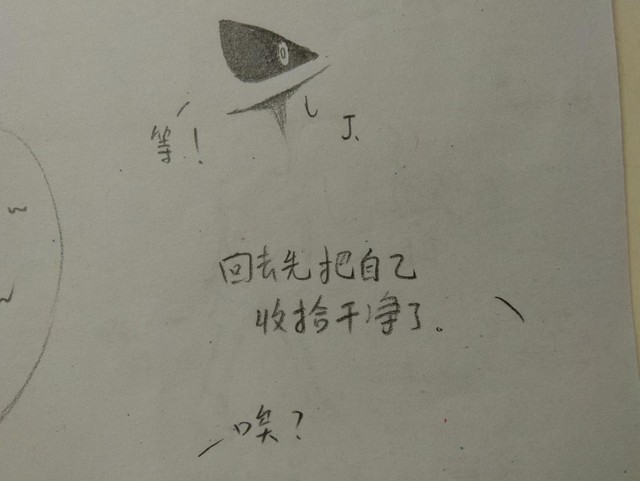 等!
J.
回去先把自己
收拾干净了。
唉?